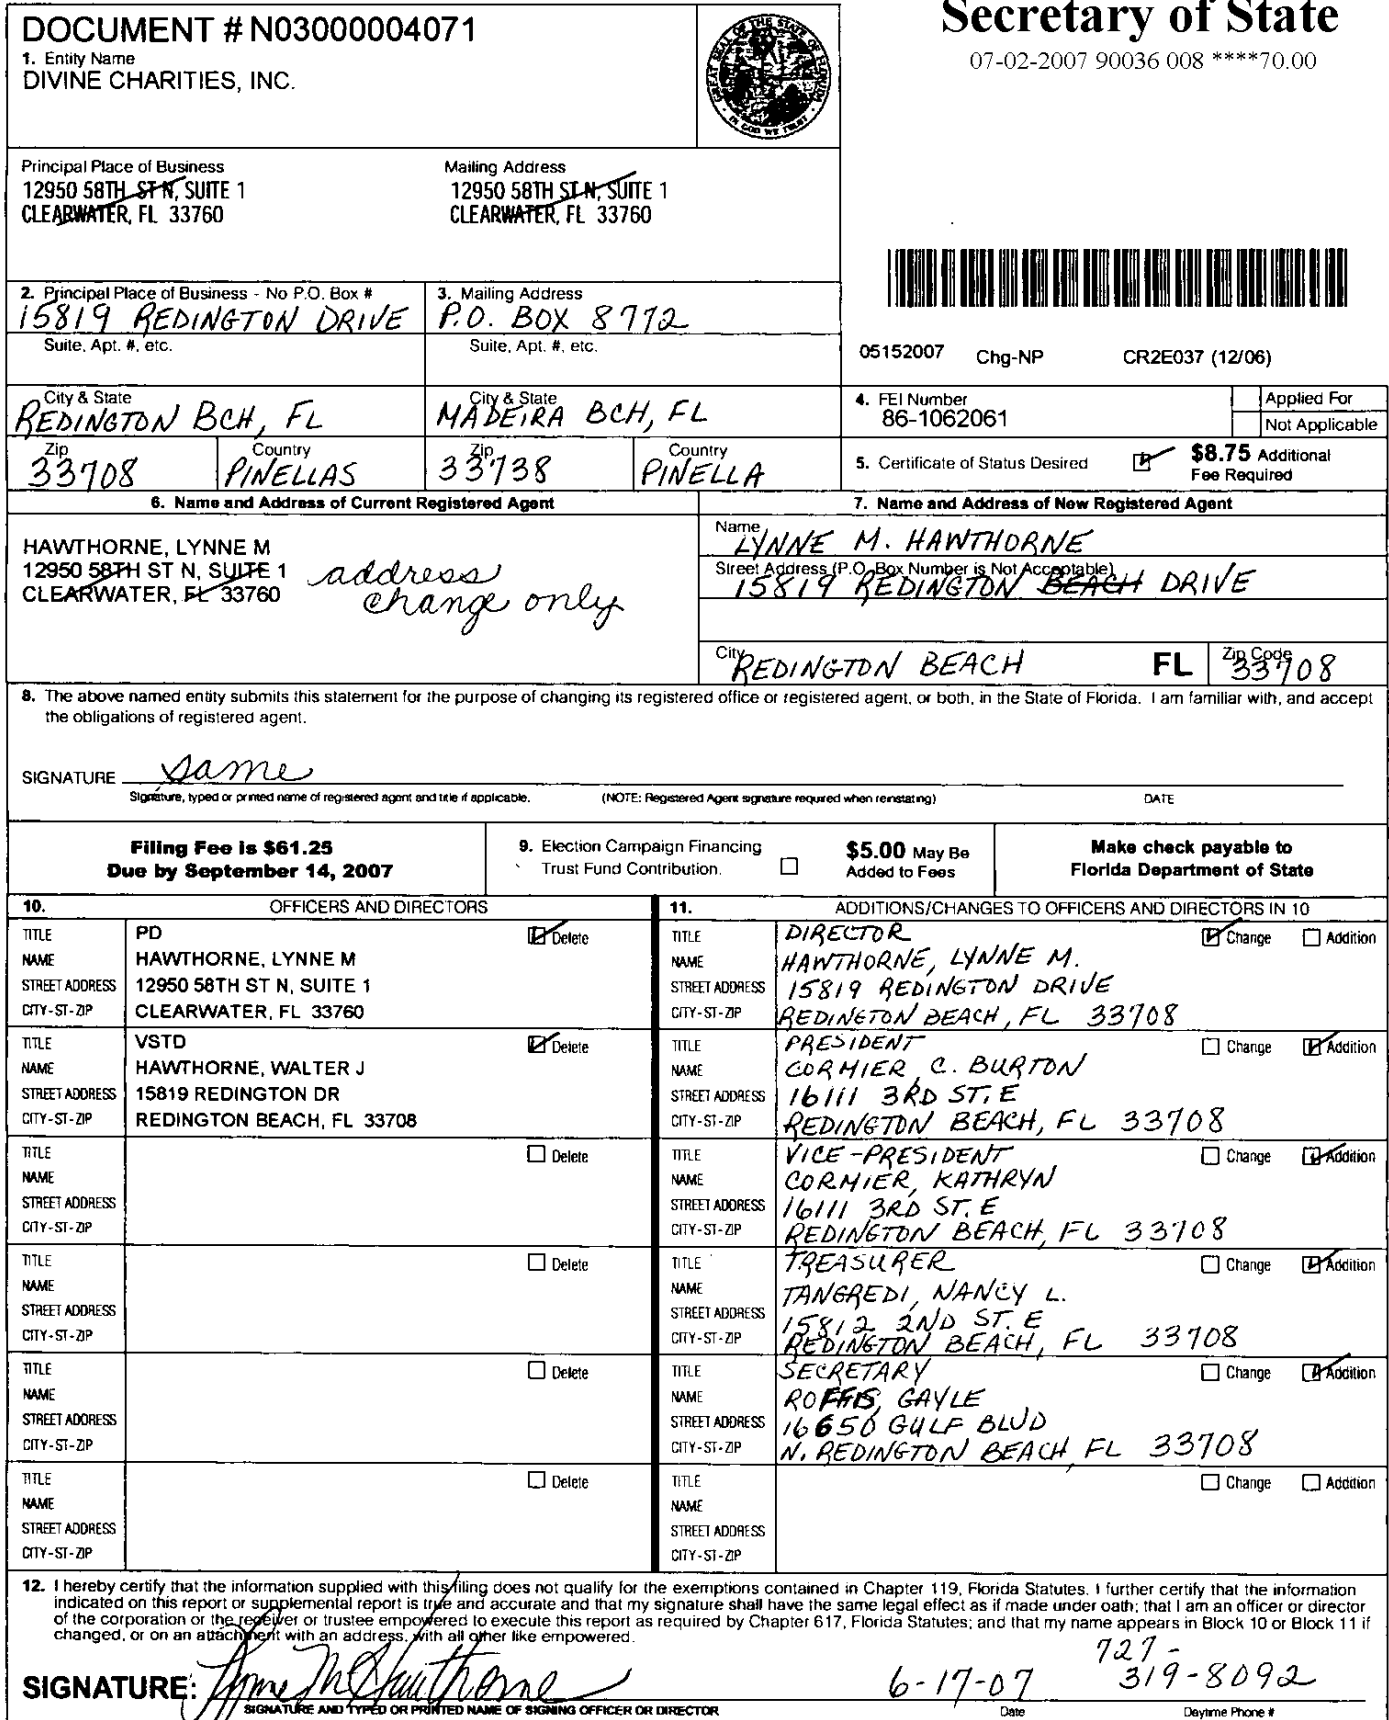 DOCUMENT # N03000004071
1. Entity Name
DIVINE CHARITIES, INC.
GREAT SEAL OF THE STATE OF FLORIDA
IN GOD WE TRUST
Secretary of State
07-02-2007 90036 008 ****70.00
Principal Place of Business
12950 58TH ST N, SUITE 1
CLEARWATER, FL 33760
Mailing Address
12950 58TH ST N, SUITE 1
CLEARWATER, FL 33760
2. Principal Place of Business - No P.O. Box #
15819 REDINGTON DRIVE
3. Mailing Address
P.O. BOX 8772
Suite, Apt. #, etc.
Suite, Apt. #, etc.
05152007 Chg-NP CR2E037 (12/06)
City & State
REDINGTON BCH, FL
City & State
MADEIRA BCH, FL
4. FEI Number
86-1062061
Applied For
Not Applicable
Zip
33708
Country
PINELLAS
Zip
33738
Country
PINELLA
5. Certificate of Status Desired
$8.75 Additional
Fee Required
6. Name and Address of Current Registered Agent
HAWTHORNE, LYNNE M
12950 58TH ST N, SUITE 1
CLEARWATER, FL 33760
address
change only
7. Name and Address of New Registered Agent
Name
LYNNE M. HAWTHORNE
Street Address (P.O. Box Number is Not Acceptable)
15819 REDINGTON BEACH DRIVE
City
REDINGTON BEACH FL
Zip Code
33708
8. The above named entity submits this statement for the purpose of changing its registered office or registered agent, or both, in the State of Florida. I am familiar with, and accept
the obligations of registered agent.
SIGNATURE same
Signature, typed or printed name of registered agent and title if applicable. (NOTE: Registered Agent signature required when reinstating) DATE
Filing Fee is $61.25
Due by September 14, 2007
9. Election Campaign Financing
Trust Fund Contribution.
$5.00 May Be
Added to Fees
Make check payable to
Florida Department of State
10. OFFICERS AND DIRECTORS
TITLE PD Delete
NAME HAWTHORNE, LYNNE M
STREET ADDRESS 12950 58TH ST N, SUITE 1
CITY-ST-ZIP CLEARWATER, FL 33760
TITLE VSTD Delete
NAME HAWTHORNE, WALTER J
STREET ADDRESS 15819 REDINGTON DR
CITY-ST-ZIP REDINGTON BEACH, FL 33708
TITLE Delete
NAME
STREET ADDRESS
CITY-ST-ZIP
TITLE Delete
NAME
STREET ADDRESS
CITY-ST-ZIP
TITLE Delete
NAME
STREET ADDRESS
CITY-ST-ZIP
TITLE Delete
NAME
STREET ADDRESS
CITY-ST-ZIP
11. ADDITIONS/CHANGES TO OFFICERS AND DIRECTORS IN 10
TITLE DIRECTOR Change Addition
NAME HAWTHORNE, LYNNE M.
STREET ADDRESS 15819 REDINGTON DRIVE
CITY-ST-ZIP REDINGTON BEACH, FL 33708
TITLE PRESIDENT Change Addition
NAME CORMIER, C. BURTON
STREET ADDRESS 16111 3RD ST. E
CITY-ST-ZIP REDINGTON BEACH, FL 33708
TITLE VICE-PRESIDENT Change Addition
NAME CORMIER, KATHRYN
STREET ADDRESS 16111 3RD ST. E
CITY-ST-ZIP REDINGTON BEACH, FL 33708
TITLE TREASURER Change Addition
NAME TANGREDI, NANCY L.
STREET ADDRESS 15812 2ND ST. E
CITY-ST-ZIP REDINGTON BEACH, FL 33708
TITLE SECRETARY Change Addition
NAME ROFFIS, GAYLE
STREET ADDRESS 16650 GULF BLVD
CITY-ST-ZIP N. REDINGTON BEACH, FL 33708
TITLE Change Addition
NAME
STREET ADDRESS
CITY-ST-ZIP
12. I hereby certify that the information supplied with this filing does not qualify for the exemptions contained in Chapter 119, Florida Statutes. I further certify that the information
indicated on this report or supplemental report is true and accurate and that my signature shall have the same legal effect as if made under oath; that I am an officer or director
of the corporation or the receiver or trustee empowered to execute this report as required by Chapter 617, Florida Statutes; and that my name appears in Block 10 or Block 11 if
changed, or on an attachment with an address, with all other like empowered.
SIGNATURE: Lynne M Hawthorne 6-17-07 727-
319-8092
SIGNATURE AND TYPED OR PRINTED NAME OF SIGNING OFFICER OR DIRECTOR Date Daytime Phone #